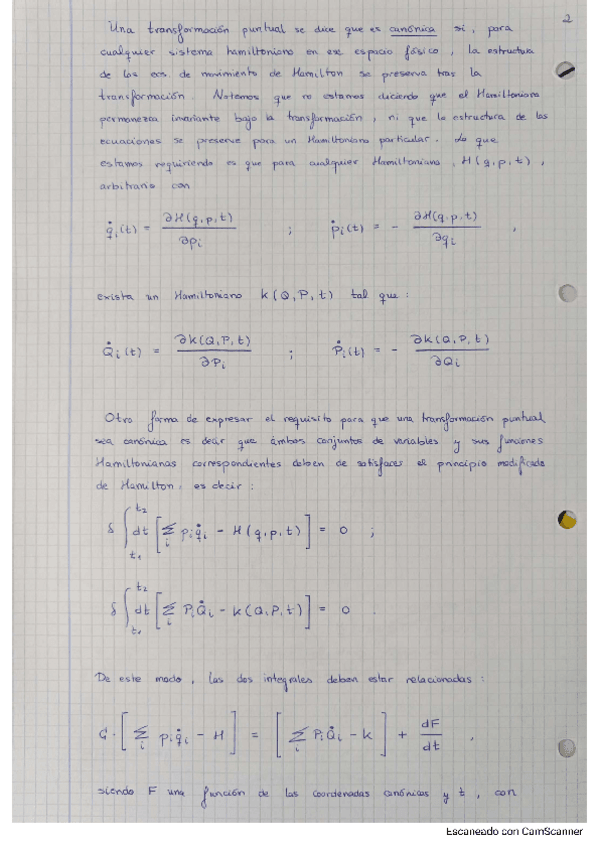 2
Una transformación puntual se dice que es canónica si, para
cualquier sistema hamiltoniano en ese espacio fásico, la estructura
de las ecs. de movimiento de Hamilton se preserva tras la
transformación. Notemos que no estamos diciendo que el Hamiltoniano
permanezca invariante bajo la transformación, ni que la estructura de las
ecuaciones se preserve para un Hamiltoniano particular. Lo que
estamos requiriendo es que para cualquier Hamiltoniano, H(q,p,t),
arbitrario con
q̇i(t) = ∂H(q,p,t)/∂pi ; ṗi(t) = - ∂H(q,p,t)/∂qi ,
exista un Hamiltoniano k(Q,P,t) tal que:
Q̇i(t) = ∂k(Q,P,t)/∂Pi ; Ṗi(t) = - ∂k(Q,P,t)/∂Qi
Otra forma de expresar el requisito para que una transformación puntual
sea canónica es decir que ambos conjuntos de variables y sus funciones
Hamiltonianas correspondientes deben de satisfacer el principio modificado
de Hamilton, es decir:
δ ∫_{t1}^{t2} dt [ Σi pi q̇i - H(q,p,t) ] = 0 ;
δ ∫_{t1}^{t2} dt [ Σi Pi Q̇i - k(Q,P,t) ] = 0 .
De este modo, las dos integrales deben estar relacionadas:
C · [ Σi pi q̇i - H ] = [ Σi Pi Q̇i - k ] + dF/dt ,
siendo F una función de las coordenadas canónicas y t, con
Escaneado con CamScanner